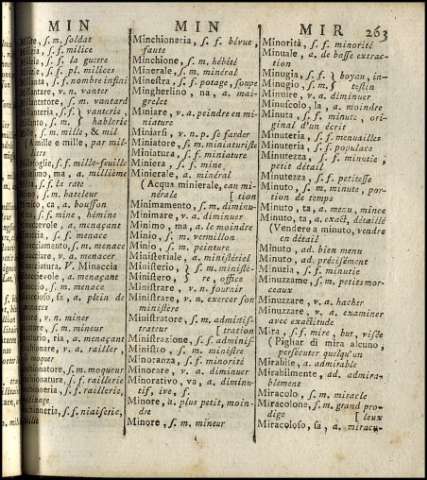 MIN MIN MIR 263
s. m. soldat
s. f. milice
s. f. la guerre
s. f. pl. milices
s. f. nombre infini
v. n. vanter
s. m. vantard
s. f. vanterie,
s. m. hablerie
s. m. mille, & mil
A mille e mille, par mil-
liers
s. f. mille-feuille
ma, a. millième
s. f. la rate
s. m. bateleur
ca, a. bouffon
s. f. mine, hémine
a. menaçant
s. m. menace
s. m. menace
v. a. menacer
V. Minaccia
a. menaçant
s. m. menace
sa, a. plein de
menaces
v. n. miner
s. m. mineur
ria, a. menaçant
v. a. railler,
moquer
s. m. moqueur
s. f. raillerie
s. f. raillerie,
badinage
s. f. niaiserie,
Minchioneria, s. f. bévue,
faute
Minchione, s. m. hébété
Minerale, s. m. minéral
Minestra, s. f. potage, soupe
Mingherlino, na, a. mai-
grelet
Miniare, v. a. peindre en mi-
niature
Miniarsi, v. n. p. se farder
Miniatore, s. m. miniaturiste
Miniatura, s. f. miniature
Miniera, s. f. mine
Minierale, a. minéral
(Acqua minierale, eau mi-
nérale [tion
Minimamento, s. m. diminu-
Minimare, v. a. diminuer
Minimo, ma, a. le moindre
Minio, s. m. vermillon
Minio, s. m. peinture
Ministeriale, a. ministériel
Ministerio, } s. m. ministè-
Ministero, } re, office
Ministrare, v. n. fournir
Ministrare, v. n. exercer son
ministère
Ministratore, s. m. adminis-
trateur [tration
Ministrazione, s. f. adminis-
Ministro, s. m. ministre
Minoranza, s. f. minorité
Minorare, v. a. diminuer
Minorativo, va, a. diminu-
tif, ive, f.
Minore, a. plus petit, moin-
dre
Minore, s. m. mineur
Minorità, s. f. minorité
Minuale, a. de basse extrac-
tion
Minugia, s. f. } boyau, in-
Minugio, s. m. } testin
Minuire, v. a. diminuer
Minuscolo, la, a. moindre
Minuta, s. f. minute, ori-
ginal d'un écrit
Minuteria, s. f. menuailles
Minuteria, s. f. populace
Minutezza, s. f. minutie,
petit détail
Minutezza, s. f. petitesse
Minuto, s. m. minute, por-
tion de temps
Minuto, ta, a. menu, mince
Minuto, ta, a. exact, détaillé
(Vendere a minuto, vendre
en détail
Minuto, ad. bien menu
Minuto, ad. précisément
Minuzia, s. f. minutie
Minuzzame, s. m. petits mor-
ceaux
Minuzzare, v. a. hacher
Minuzzare, v. a. examiner
avec exactitude
Mira, s. f. mire, but, visée
(Pigliar di mira alcuno,
persécuter quelqu'un
Mirabile, a. admirable
Mirabilmente, ad. admira-
blement
Miracolo, s. m. miracle
Miracolone, s. m. grand pro-
dige [leux
Miracoloso, sa, a. miracu-